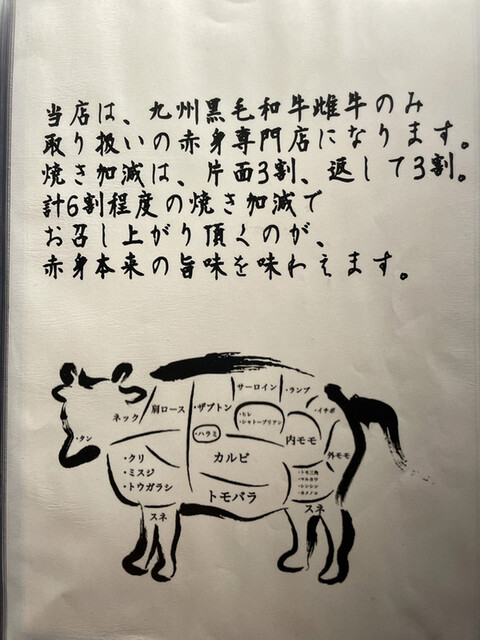 当店は、九州黒毛和牛雌牛のみ
取り扱いの赤身専門店になります。
焼き加減は、片面3割、返して3割。
計6割程度の焼き加減で
お召し上がり頂くのが、
赤身本来の旨味を味わえます。
サーロイン
・ランプ
ネック
肩ロース
・ザブトン
・イチボ
・ヒレ
・シャトーブリアン
・タン
・ハラミ
内モモ
外モモ
・クリ
・ミスジ
・トウガラシ
カルビ
・トモ三角
・マルカワ
・シンシン
・カメノコ
トモバラ
スネ
スネ